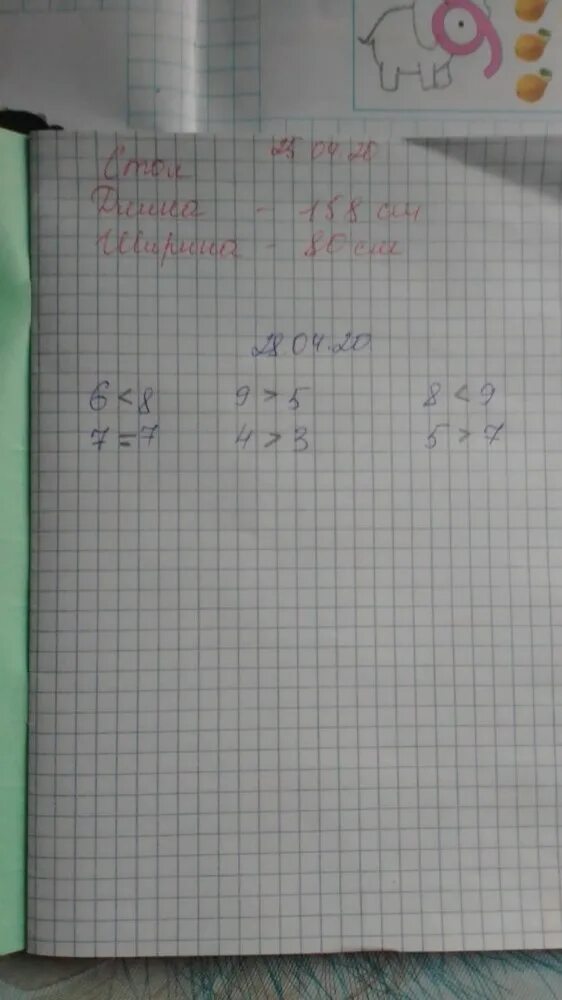 9
25 04.20
Стол
Длина - 158 см
Ширина - 80 см
28 04.20
6 < 8 9 > 5 8 < 9
7 = 7 4 > 3 5 > 7